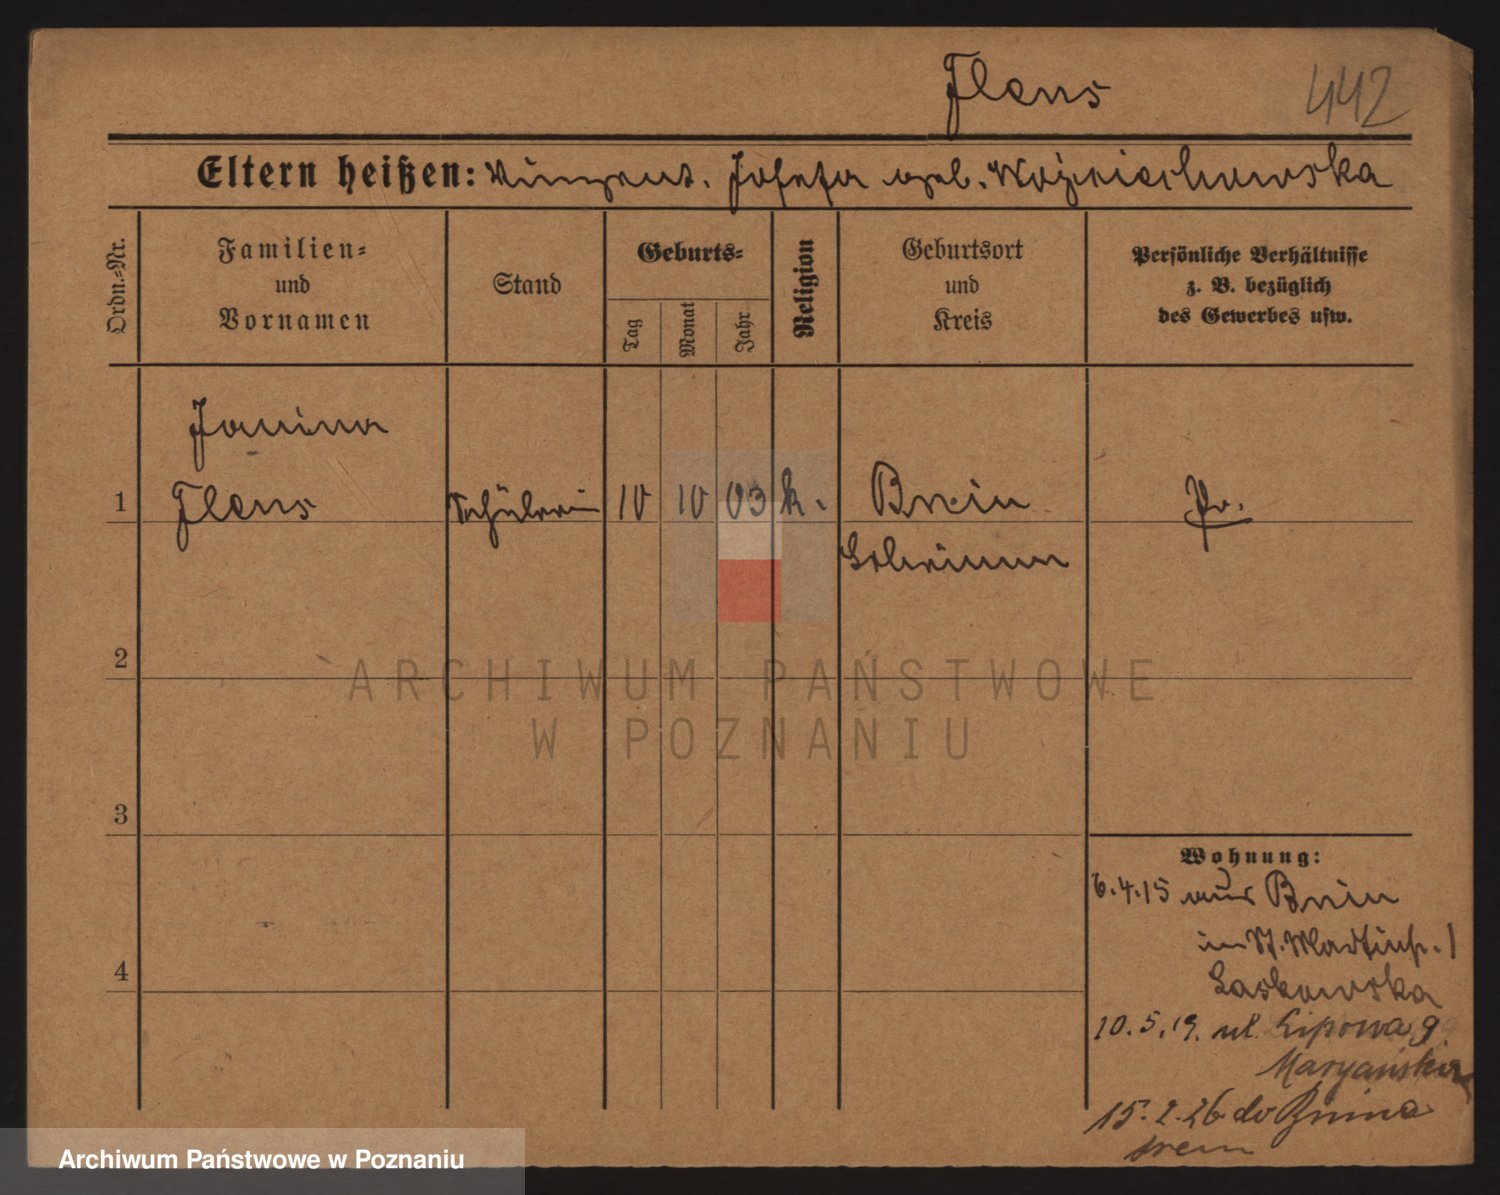 Flens 442
Eltern heißen: Vinzent. Josefa geb. Wojciechowska
Ordn.-Nr.
Familien-
und
Vornamen
Stand
Geburts-
Tag
Monat
Jahr
Religion
Geburtsort
und
Kreis
Persönliche Verhältnisse
z. B. bezüglich
des Gewerbes usw.
Janina
1 Flens Schülerin 10 10 03 k. Bnin Pr.
Schrimm
2
3
4
Wohnung:
6.4.15 aus Bnin
in St. Martinstr. 1
Laskowska
10.5.19. ul. Lipowa 9
Maryańska
15.2.26 do Bnina
Archiwum Państwowe
w Poznaniu
Archiwum Państwowe w Poznaniu